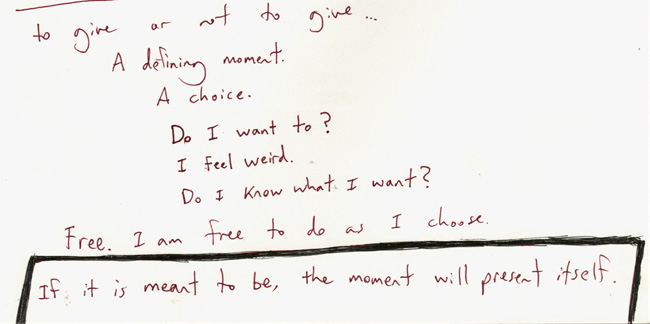 to give or not to give...
A defining moment.
A choice.
Do I want to?
I feel weird.
Do I know what I want?
Free. I am free to do as I choose.
If it is meant to be, the moment will present itself.